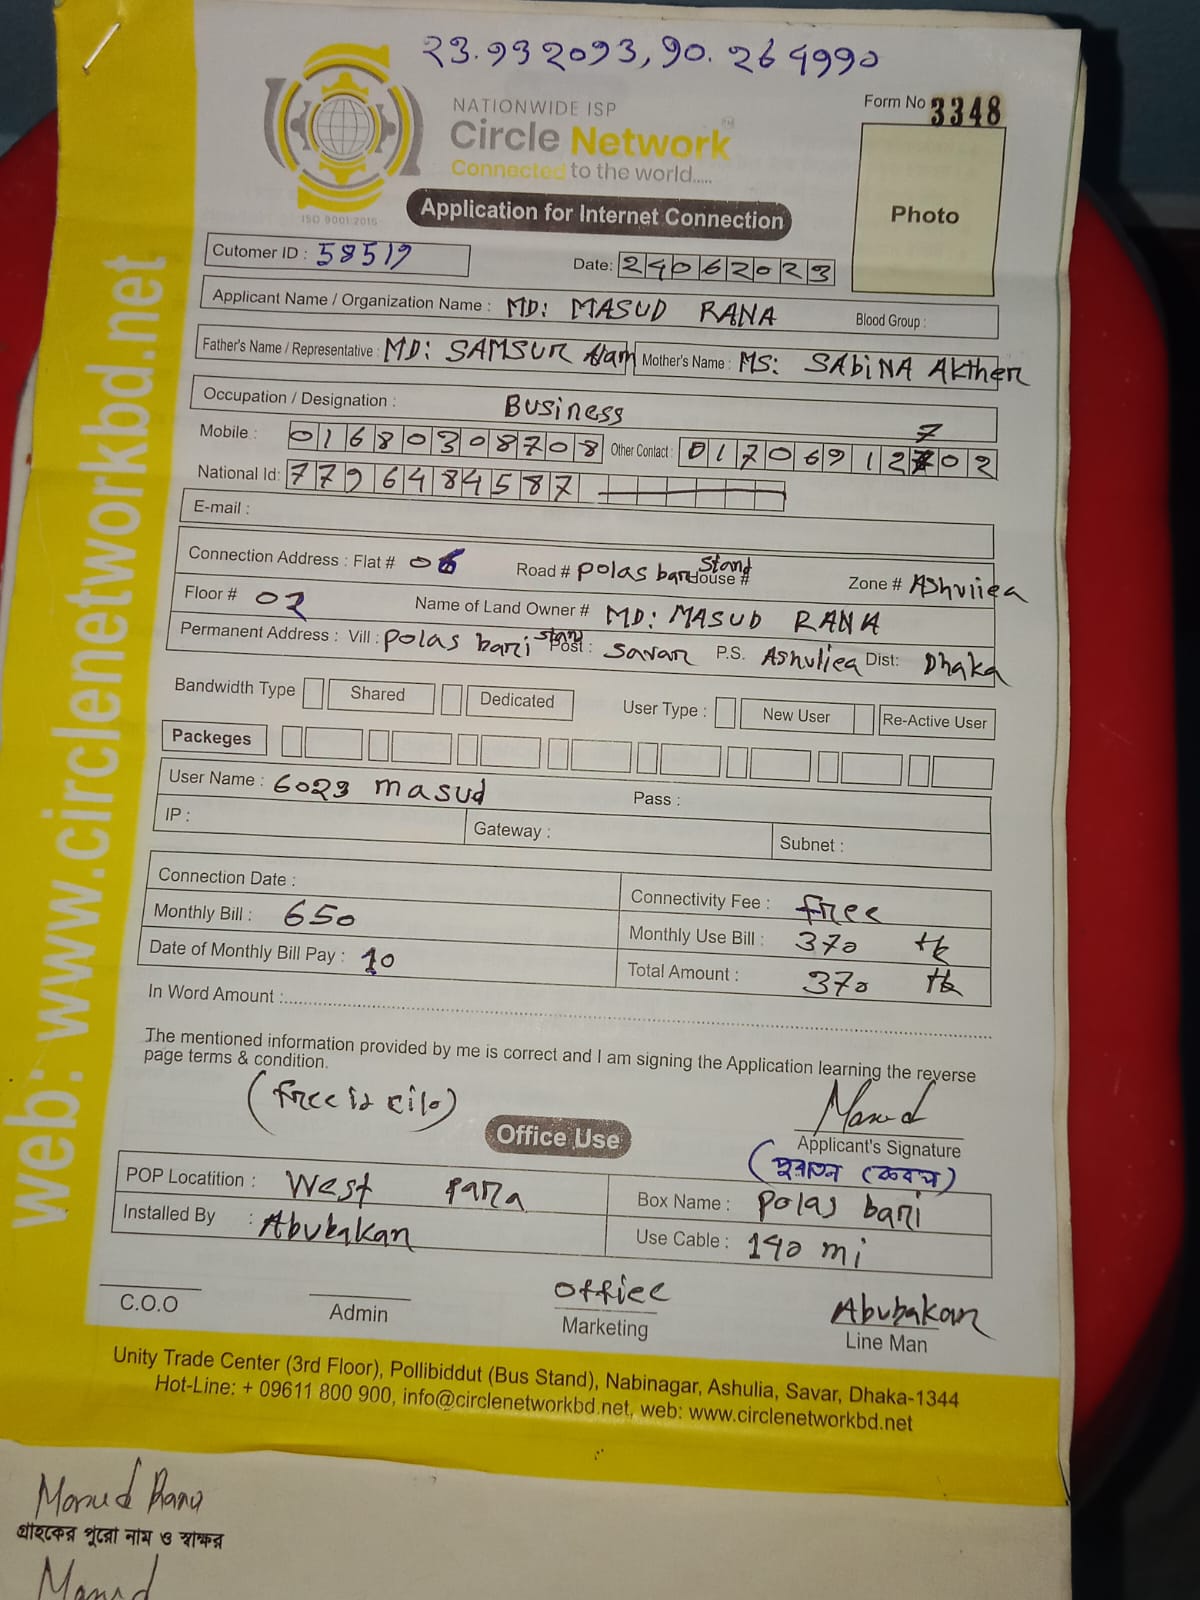 23.932093, 90.264990
NATIONWIDE ISP
Circle Network
Connected to the world.....
ISO 9001:2015
Form No 3348
Photo
Application for Internet Connection
Cutomer ID : 58519
Date: 24062023
Applicant Name / Organization Name : MD: MASUD RANA Blood Group :
Father's Name / Representative : MD: SAMSUR Alam Mother's Name : MS: SAbiNA AKther
Occupation / Designation : Business
Mobile : 01680308708 Other Contact : 01706912702
National Id: 7796484587
E-mail :
Connection Address : Flat # 06 Road # polas bari Stand House # Zone # Ashuliea
Floor # 02 Name of Land Owner # MD: MASUD RANA
Permanent Address : Vill : polas bari stand Post : Savar P.S. Ashuliea Dist: Dhaka
Bandwidth Type Shared Dedicated User Type : New User Re-Active User
Packeges
User Name : 6023 masud Pass :
IP : Gateway : Subnet :
Connection Date : Connectivity Fee : free
Monthly Bill : 650 Monthly Use Bill : 370 tk
Date of Monthly Bill Pay : 10 Total Amount : 370 tk
In Word Amount :
The mentioned information provided by me is correct and I am signing the Application learning the reverse
page terms & condition.
Masud
Applicant's Signature
Office Use
POP Locatition : West para Box Name : polas bari
Installed By : Abubakar Use Cable : 140 mi
C.O.O Admin
Office
Marketing
Abubakar
Line Man
Unity Trade Center (3rd Floor), Pollibiddut (Bus Stand), Nabinagar, Ashulia, Savar, Dhaka-1344
Hot-Line: + 09611 800 900, info@circlenetworkbd.net, web: www.circlenetworkbd.net
web: www.circlenetworkbd.net
Masud Rana
গ্রাহকের পুরো নাম ও স্বাক্ষর
Masud